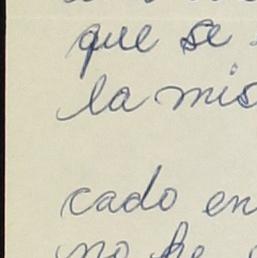 que se
la mis
cado en
no he